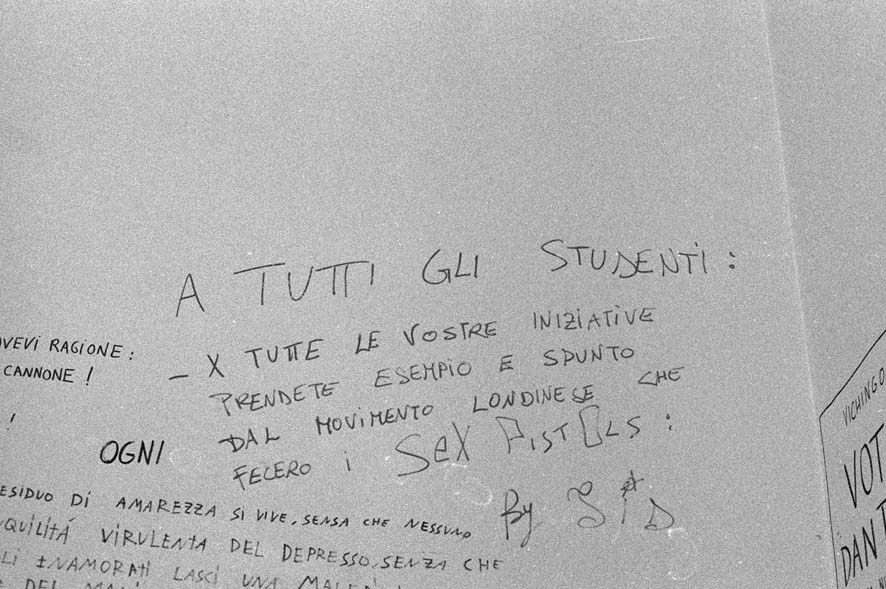 A TUTTI GLI STUDENTI :
– X TUTTE LE VOSTRE INIZIATIVE
PRENDETE ESEMPIO E SPUNTO
DAL MOVIMENTO LONDINESE CHE
FECERO i SeX PISTOLS :
By SiD
AVEVI RAGIONE :
CANNONE !
!
OGNI
ESIDUO DI AMAREZZA SI VIVE, SENSA CHE NESSUNO
QUILITÁ VIRULENTA DEL DEPRESSO, SENZA CHE
LI INNAMORATI LASCI UNA
DEL
VICHINGO
VOT
DANT